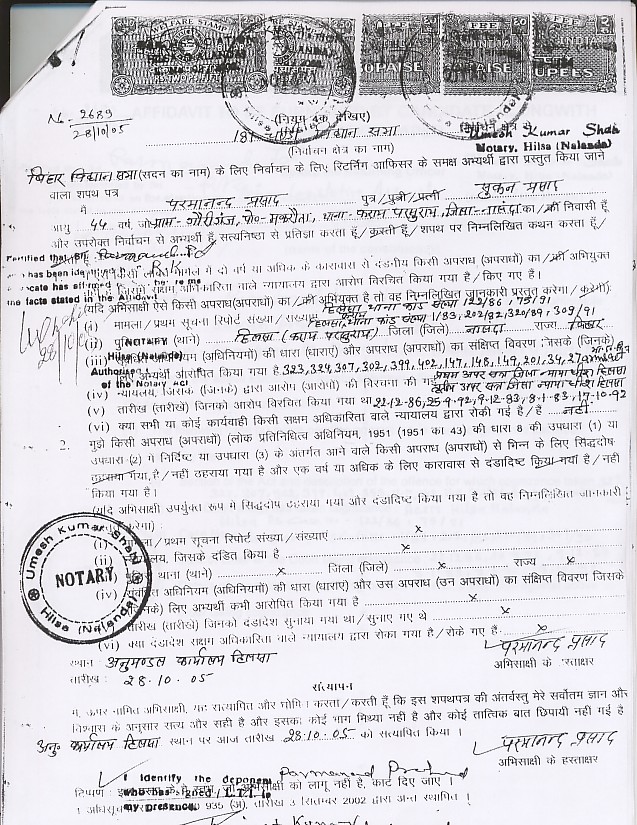 WELFARE STAMP
FEE
FEE
PAISE
PAISE
RUPEES
No - 2689
28/10/05
(नियम 4क देखिए)
181 विधान सभा निर्वाचन क्षेत्र से
(निर्वाचन क्षेत्र का नाम)
Umesh Kumar Shah
Notary, Hilsa (Nalanda)
बिहार विधान सभा (सदन का नाम) के लिए निर्वाचन के लिए रिटर्निंग आफिसर के समक्ष अभ्यर्थी द्वारा प्रस्तुत किया जाने
वाला शपथ पत्र
मै परमानन्द प्रसाद पुत्र/पुत्री/पत्नी सुकन प्रसाद
आयु 44 वर्ष, जो ग्राम - गौरीगंज, पो०- मकरौता, थाना- कराय परसुराय, जिला - नालंदा का/की निवासी हूँ
और उपरोक्त निर्वाचन से अभ्यर्थी हूँ, सत्यनिष्ठा से प्रतिज्ञा करता हूँ/करती हूँ/शपथ पर निम्नलिखित कथन करता हूँ/
Certified that
has been identified
किसी लंबित मामले में दो वर्ष या अधिक के कारावास से दंडनीय किसी अपराध (अपराधों) का/की अभियुक्त
cate has affirmed before me
सक्षम अधिकारिता वाले न्यायालय द्वारा आरोप विरचित किया गया है/किए गए है।
the facts stated in the Affidavit
(यदि अभियुक्त ऐसे किसी अपराध(अपराधों) का/की अभियुक्त है तो वह निम्नलिखित जानकारी प्रस्तुत करेगा/करेगी)
हिलसा, थाना कांड संख्या 122/86, 75/91
(i) मामला/प्रथम सूचना रिपोर्ट संख्या/संख्याएं हिलसा, थाना कांड संख्या 183, 202/92, 320/89, 309/91
28/10/05
(ii) पुलिस थाना (थाने) हिलसा (कराय परसुराय) जिला (जिले) नालंदा राज्य बिहार
NOTARY
Hilsa (Nalanda)
(iii) अधिनियम (अधिनियमों) की धारा (धाराएं) और अपराध (अपराधों) का संक्षिप्त विवरण जिसके (जिनके)
Authorised
of the Notary Act
लिए अभ्यर्थी आरोपित किया गया है 323, 324, 307, 302, 399, 402, 147, 148, 149, 201, 34, 27
(iv) न्यायालय, जिसके (जिनके) द्वारा आरोप (आरोपों) की विरचना की गई प्रथम अपर सत्र जिला न्यायाधीश हिलसा
(v) तारीख (तारीखे) जिनको आरोप विरचित किया गया था 22-12-86, 25-9-92, 9-12-93, 8-1-83, 17-10-92
(vi) क्या सभी या कोई कार्यवाही किसी सक्षम अधिकारिता वाले न्यायालय द्वारा रोकी गई है/है नहीं
2. मुझे किसी अपराध (अपराधों) (लोक प्रतिनिधित्व अधिनियम, 1951 (1951 का 43) की धारा 8 की उपधारा (1) या
उपधारा (2) में निर्दिष्ट या उपधारा (3) के अंतर्गत आने वाले किसी अपराध (अपराधों) से भिन्न के लिए सिद्धदोष
ठहराया गया है/नहीं ठहराया गया है और एक वर्ष या अधिक के लिए कारावास से दंडादिष्ट किया गया है/नहीं
किया गया है।
(यदि अभिसाक्षी उपर्युक्त रूप मे सिद्धदोष ठहराया गया और दंडादिष्ट किया गया है तो वह निम्नलिखित जानकारी
करेगा)
(i) मामला/प्रथम सूचना रिपोर्ट संख्या/संख्याएं x
(ii) न्यायालय, जिसके दंडित किया है x
(iii) पुलिस थाना (थाने) x जिला (जिले) x राज्य x
(iv) संबंधित अधिनियम (अधिनियमों) की धारा (धाराएं) और उस अपराध (उन अपराधों) का संक्षिप्त विवरण जिसके
(जिनके) लिए अभ्यर्थी कभी आरोपित किया गया है x
तारीख (तारीखे) जिनको दंडादेश सुनाया गया था/सुनाए गए थे x
(vi) क्या दंडादेश सक्षम अधिकारिता वाले न्यायालय द्वारा रोका गया है/रोके गए हैं x
Umesh Kumar Shah
NOTARY
Hilsa (Nalanda)
परमानन्द प्रसाद
स्थान : अनुमण्डल कार्यालय हिलसा
अभिसाक्षी के हस्ताक्षर
तारीख : 28.10.05
सत्यापन
मै, ऊपर नामित अभिसाक्षी, यह सत्यापित और घोषित करता/करती हूँ कि इस शपथपत्र की अंतर्वस्तु मेरे सर्वोतम ज्ञान और
विश्वास के अनुसार सत्य और सही है और इसका कोई भाग मिथ्या नहीं है और कोई तात्विक बात छिपायी नहीं गई है
अनु० कार्यालय हिलसा स्थान पर आज तारीख 28.10.05 को सत्यापित किया।
परमानन्द प्रसाद
अभिसाक्षी के हस्ताक्षर
I identify the deponent Parmanand Prasad
टिप्पण : अभिसाक्षी को लागू नहीं है, काट दिए जाए।
who has signed / L.T.I. in
my presence
935 (अ), तारीख 3 सितम्बर 2002 द्वारा अन्त स्थापित।